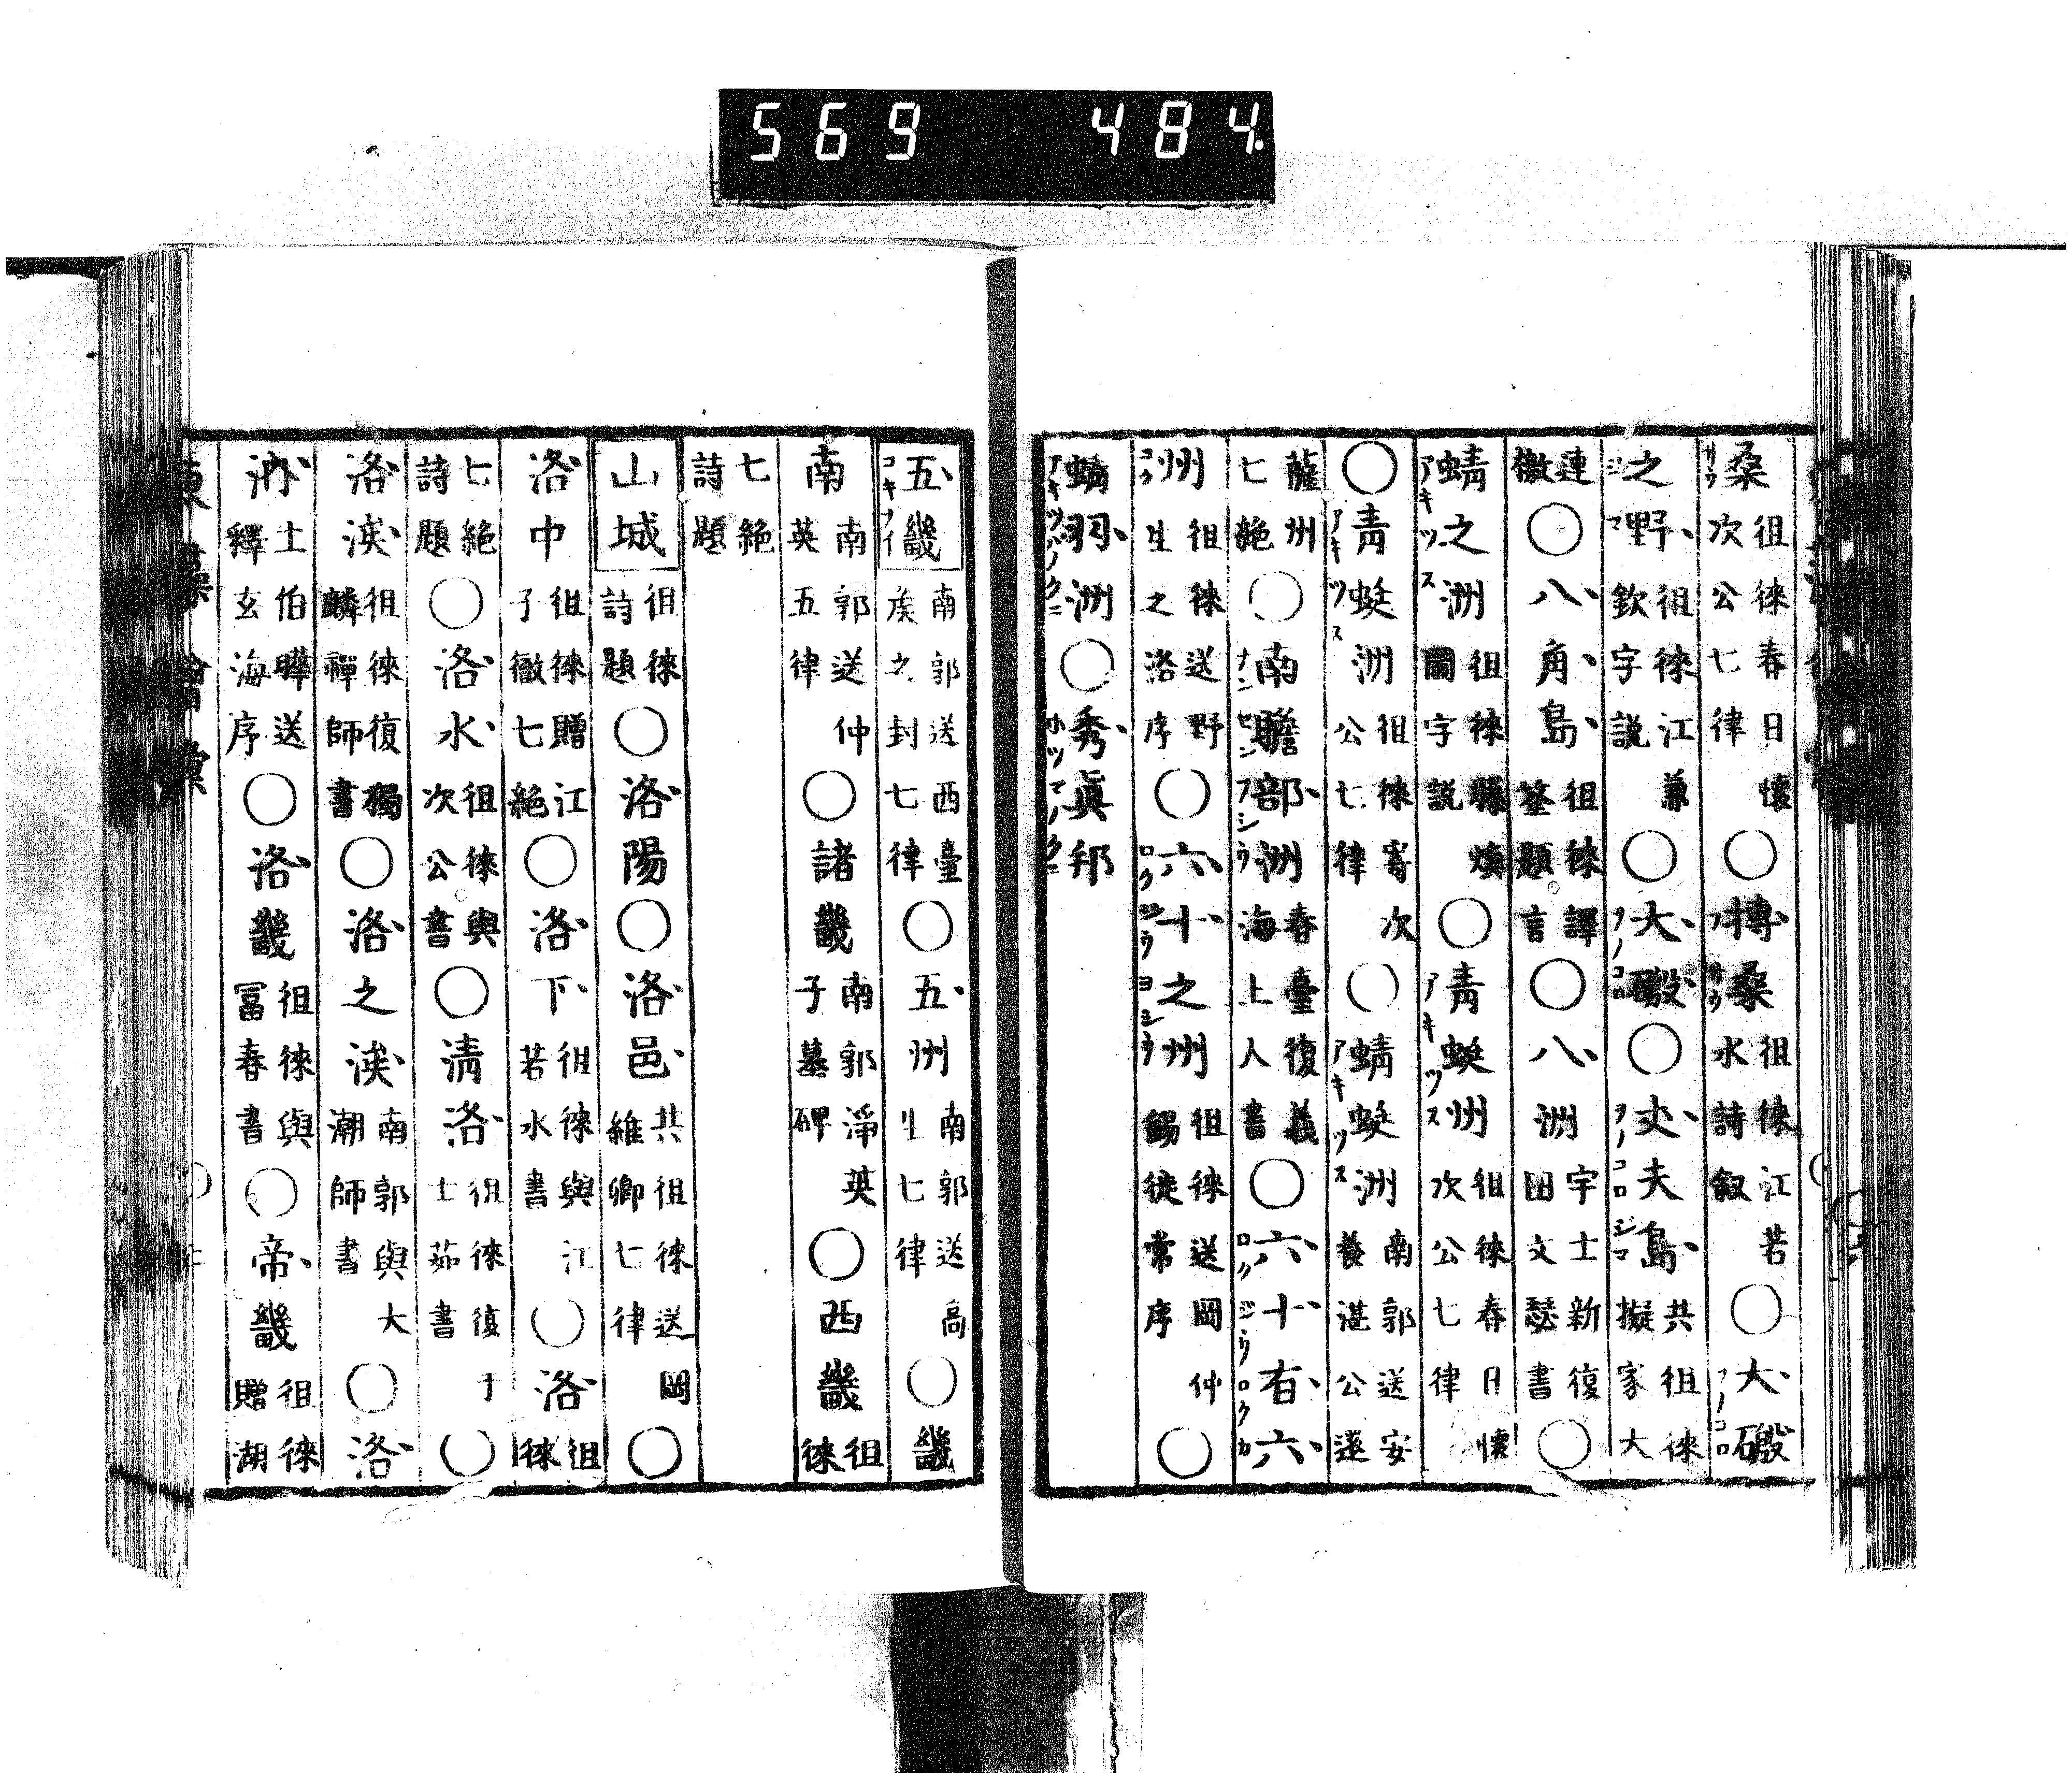 569 484.
桑 徂徠春日懷次公七律 ○ 榑桑 徂徠江若水詩叙 ○ 大磤
之野 徂徠江兼欽字説 ○ 大磤 ○ 丈夫島 共徂徠擬家大
連檄 ○ 八角島 徂徠譯筌題言 ○ 八洲 宇士新復田文瑟書 ○
蜻之洲 徂徠縣煥圖字説 ○ 青蜓州 徂徠春日懷次公七律
○ 青蜓洲 徂徠寄次公七律 ○ 蜻蜓洲 南郭送安養湛公遂
薩州七絶 ○ 南瞻部洲 春臺復義海上人書 ○ 六十有六
州 徂徠送野生之洛序 ○ 六十之州 徂徠送岡仲錫徙常序 ○
蜻羽洲 ○ 秀眞邦
五畿 南郭送西臺矦之封七律 ○ 五州 南郭送高生七律 ○ 畿
南 南郭送仲英五律 ○ 諸畿 南郭淨英子墓碑 ○ 西畿 徂徠
七絶詩題
山城 徂徠詩題 ○ 洛陽 ○ 洛邑 共徂徠送岡維卿七律 ○
洛中 徂徠贈江子徹七絶 ○ 洛下 徂徠與江若水書 ○ 洛 徂徠
七絶詩題 ○ 洛水 徂徠與次公書 ○ 清洛 徂徠復于士茹書 ○
洛涘 徂徠復獨麟禪師書 ○ 洛之涘 南郭與大潮師書 ○ 洛
汭 土伯曄送釋玄海序 ○ 洛畿 徂徠與冨春書 ○ 帝畿 徂徠贈湖